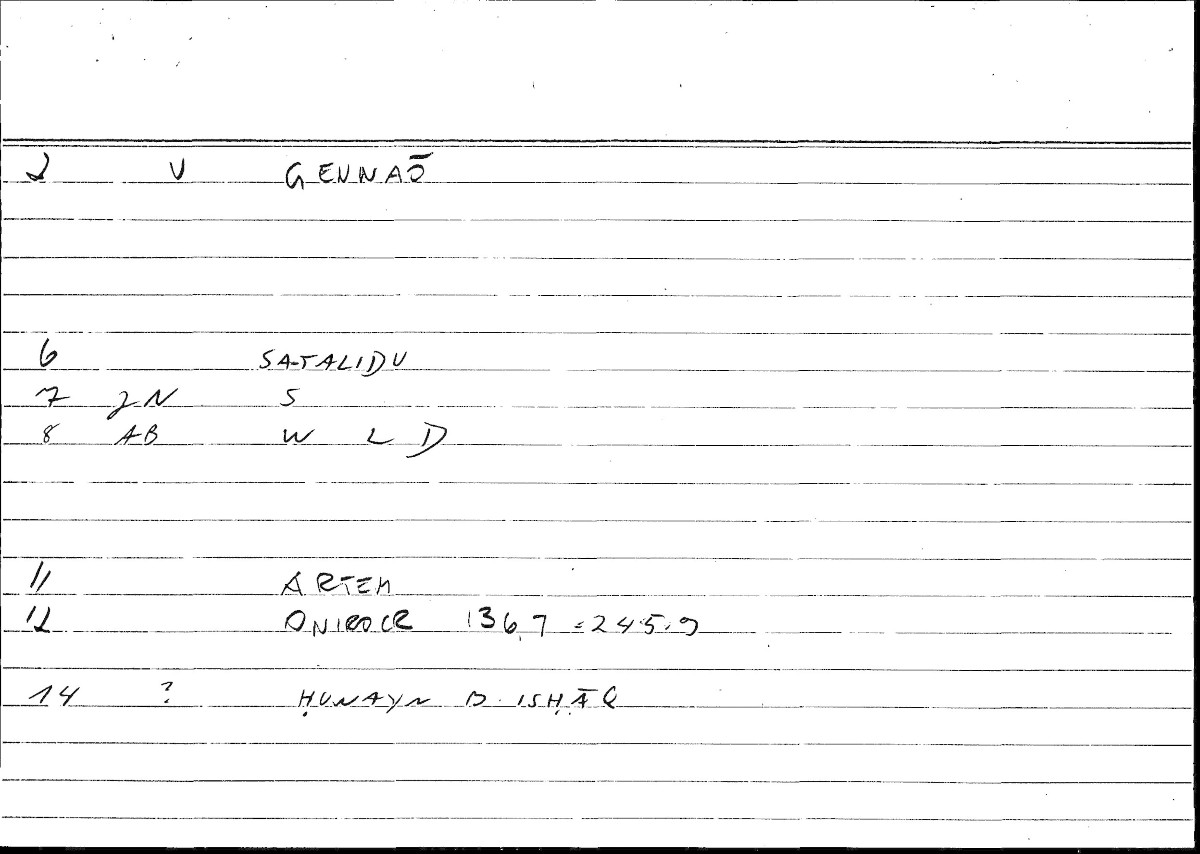 2 V GENNAŌ
6 SATALIDU
7 2N S
8 AB W L D
11 ARTEM
12 ONIROCR 136,7 = 245.9
14 ? ḤUNAYN B. ISḤĀQ